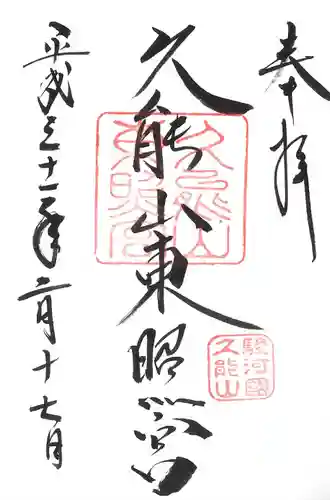 奉拝
久能山東照宮
平成三十一年二月十七日
久能山東照宮
駿河國
久能山